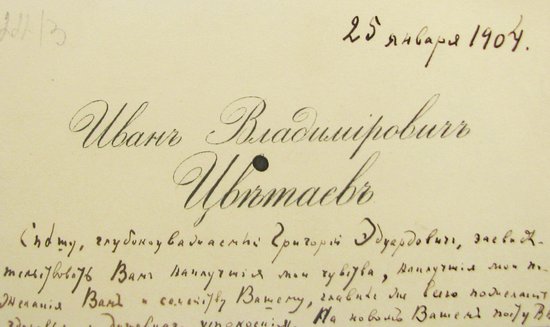 25 января 1904.
Иванъ Владиміровичъ
Цвѣтаевъ
Спѣшу, глубокоуважаемый Григорій Эдуардовичъ, засвидѣ-
тельствовать Вамъ наилучшія мои чувства, наилучшія мои по-
желанія Вамъ и семейству Вашему, главнѣе
На новомъ Вашемъ посту В